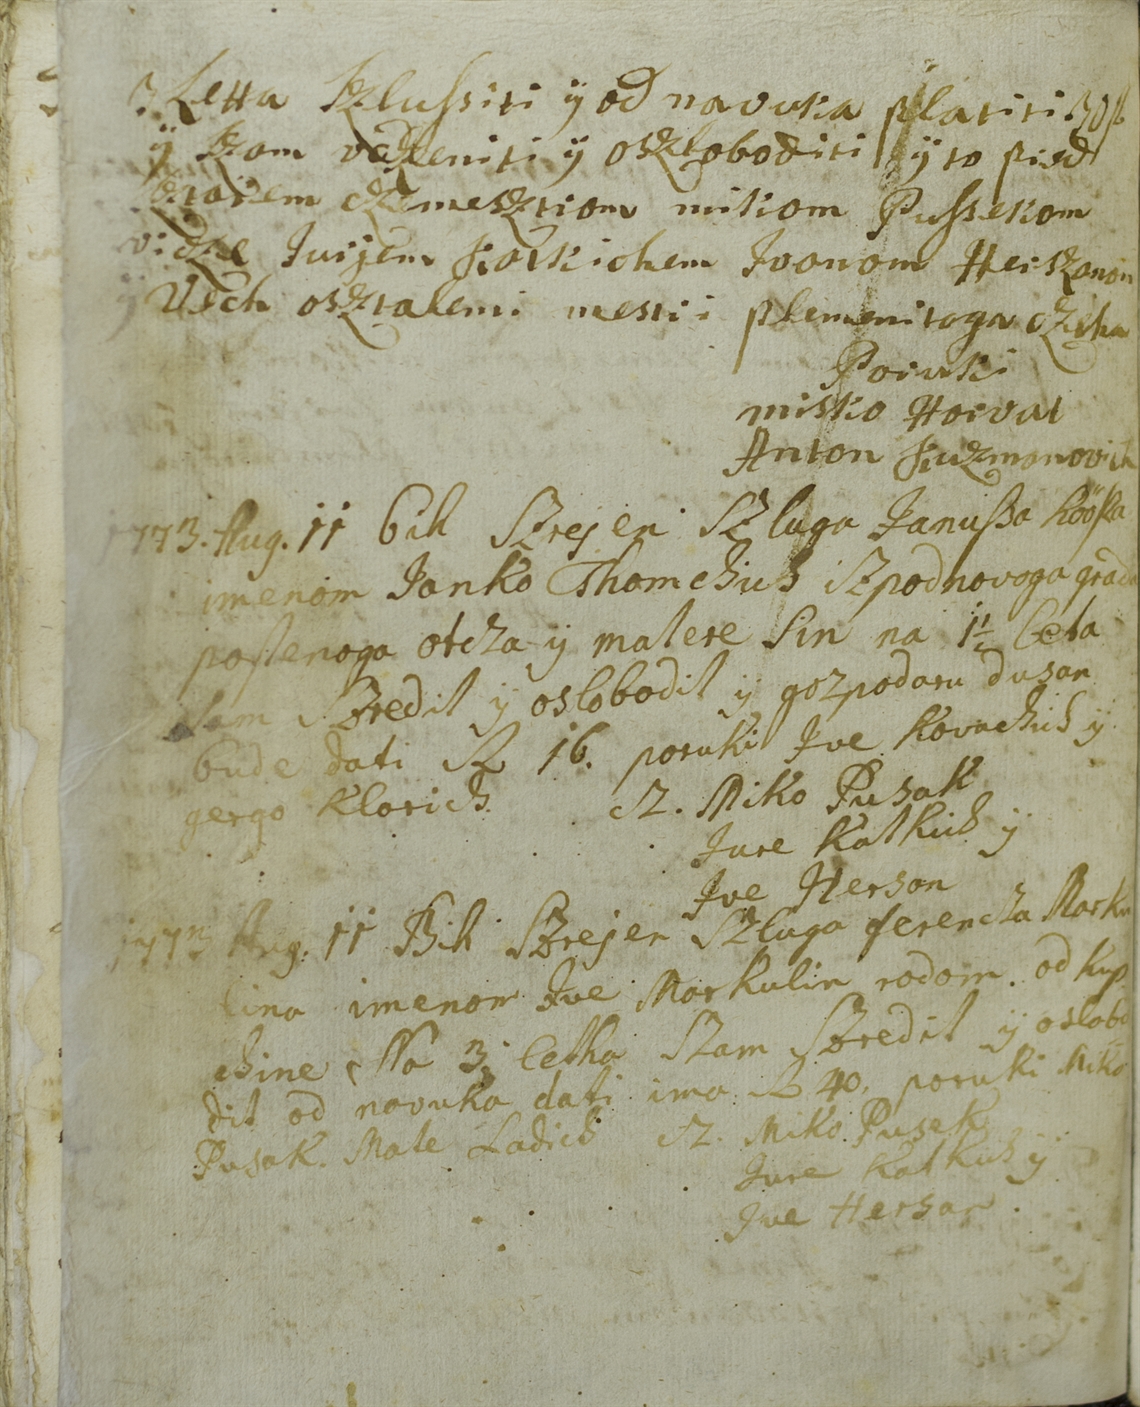 3 Letta Szlussiti ÿ od navuka platiti 30 fl
ÿ Szam vcżeniti ÿ oszloboditi ÿ to pred
sztarem czemesztrom mikom Pussekom
vicze Jurjem Katkichem Ivanom Herszanom
ÿ Vsch osztalemi mestri plemenitoga czeha
Poruki
misko Horvat
Anton Kuzmanovich
1773. Aug. 11 bih Szrejen Szluga Janussa
imenom Janko Thomchich iz pod novoga grada
postenoga otcza ÿ matere sin na 1½ leta
sam Szredil ÿ oslobodil ÿ gozpodaru dusan
bude dati R 16. poruki Ive Kovachich ÿ
gergo Klarich cz. Miko Pusak
Jure Katkich ÿ
Ive Herson
1773 Aug. 11 Bih Szrejen Szluga ferencza Marku
lina imenom Ive Markulin rodom od kup
chine Na 3 letha Szam Szredil ÿ oslobo
dil od navuka dati ima R 40, poruki Miko
Pusak. Mate Ladich cz. Miko Pusek
Jure Katkich ÿ
Ive Hersan